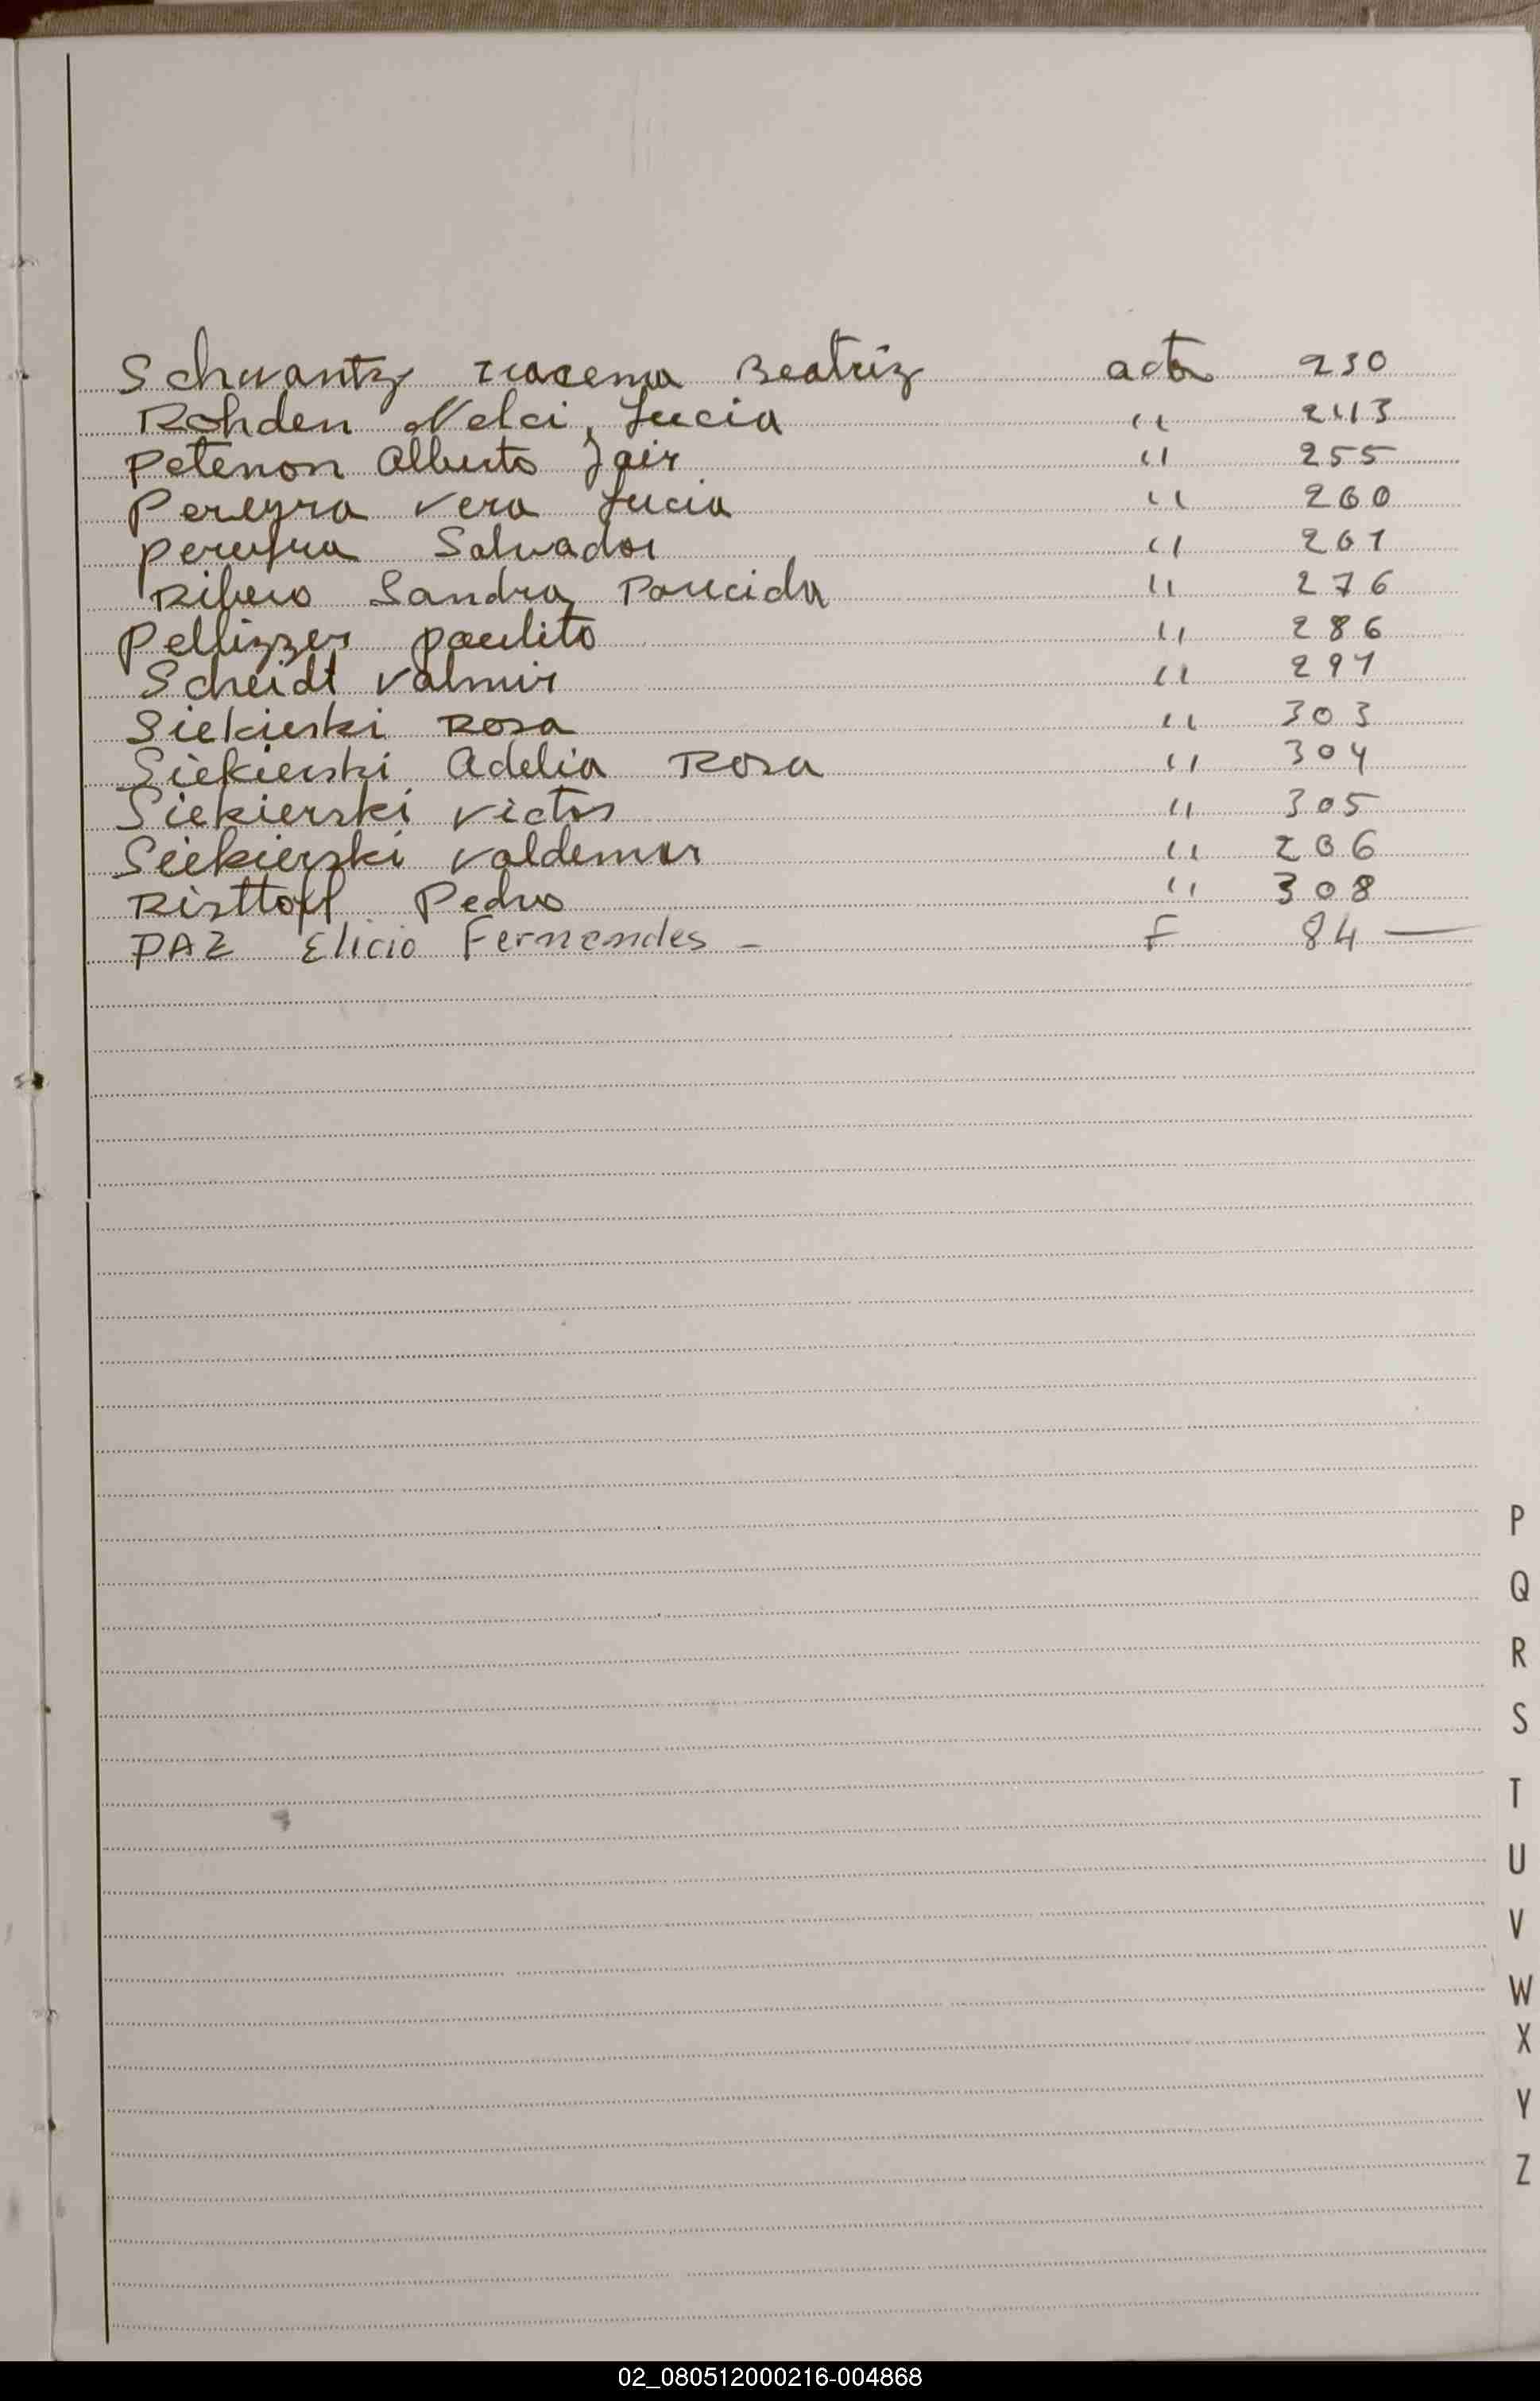 Schwantz Iracema Beatriz acta 230
Rohden Nelci, Lucia " 243
Petenon Alberto Jair " 255
Pereyra Vera Lucia " 260
Pereyra Salvador " 261
Ribero Sandra Parecida " 276
Pellizzer paulito " 286
Scheidt Valmir " 291
Siekierski Rosa " 303
Siekierski Adelia Rosa " 304
Siekierski Victor " 305
Siekierski Valdemar " 206
Risttoff Pedro " 308
PAZ Elicio Fernendes - F 84 —
P
Q
R
S
T
U
V
W
X
Y
Z
02_080512000216-004868